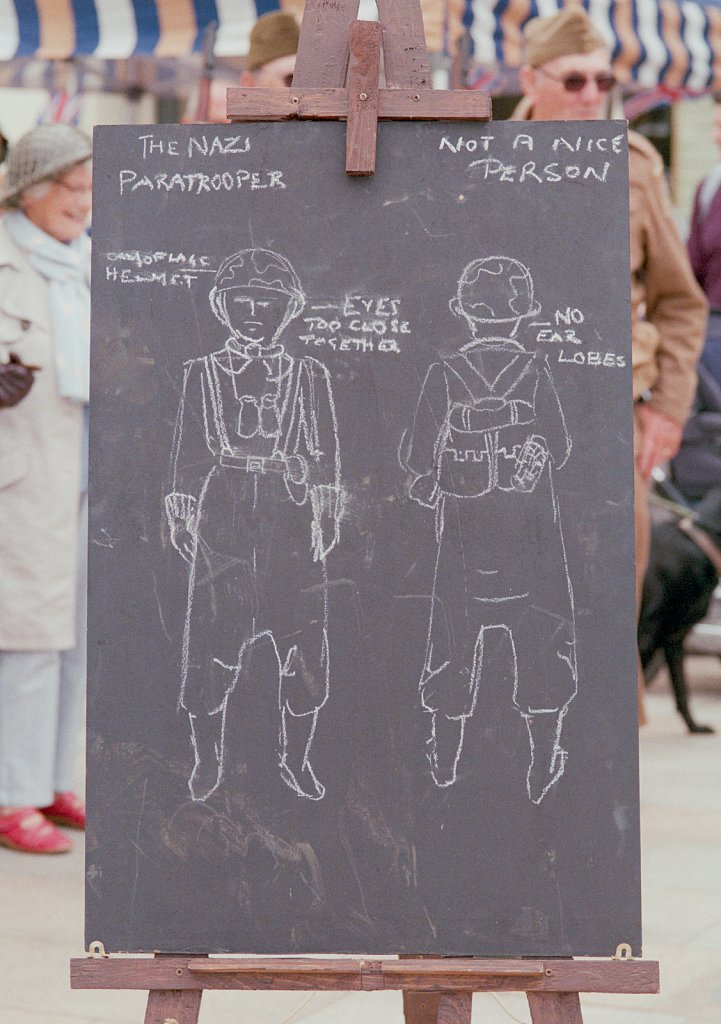 THE NAZI
PARATROOPER
NOT A NICE
PERSON
CAMOFLAGE
HELMET
EYES
TOO CLOSE
TOGETHER
NO
EAR
LOBES